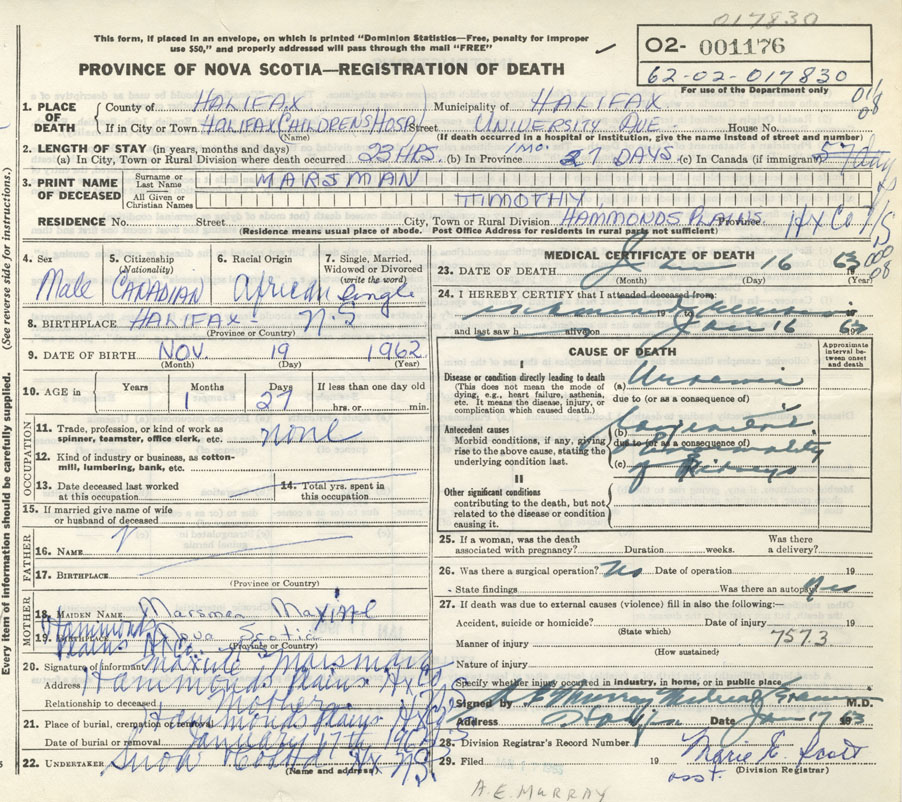 017830
This form, if placed in an envelope, on which is printed "Dominion Statistics—Free, penalty for improper
use $50," and properly addressed will pass through the mail "FREE"
02- 001176
62-02-017830
For use of the Department only
PROVINCE OF NOVA SCOTIA—REGISTRATION OF DEATH
1. PLACE OF DEATH
County of HALIFAX Municipality of HALIFAX
If in City or Town HALIFAX CHILDRENS HOSP. Street UNIVERSITY AVE House No.
(Name) (If death occurred in a hospital or institution, give the name instead of street and number)
2. LENGTH OF STAY (in years, months and days)
(a) In City, Town or Rural Division where death occurred 23 HRS. (b) In Province 1 MO. 27 DAYS (c) In Canada (if immigrant)
3. PRINT NAME OF DECEASED
Surname or Last Name MARSMAN
All Given or Christian Names TIMOTHY
RESIDENCE No. Street City, Town or Rural Division HAMMONDS PLAINS Province Hx Co N.S
(Residence means usual place of abode. Post Office Address for residents in rural parts not sufficient)
4. Sex Male
5. Citizenship (Nationality) CANADIAN
6. Racial Origin African
7. Single, Married, Widowed or Divorced (write the word) Single
8. BIRTHPLACE HALIFAX - N.S
(Province or Country)
9. DATE OF BIRTH NOV. 19 1962
(Month) (Day) (Year)
10. AGE in Years Months 1 Days 27 If less than one day old
hrs. or min.
OCCUPATION
11. Trade, profession, or kind of work as spinner, teamster, office clerk, etc. none
12. Kind of industry or business, as cotton-mill, lumbering, bank, etc.
13. Date deceased last worked at this occupation
14. Total yrs. spent in this occupation
15. If married give name of wife or husband of deceased
FATHER
16. NAME
17. BIRTHPLACE
(Province or Country)
MOTHER
18. MAIDEN NAME Marsman Maxine
19. BIRTHPLACE Hammonds Plains Hx Co. Nova Scotia
(Province or Country)
20. Signature of informant Maxine Marsman
Address Hammonds Plains Hx Co.
Relationship to deceased Mother
21. Place of burial, cremation or removal Hammonds Plains Hx Co
Date of burial or removal January 17th 1963
22. UNDERTAKER Snow & Co Ltd Hx N.S.
(Name and address)
MEDICAL CERTIFICATE OF DEATH
23. DATE OF DEATH Jan 16 1963
(Month) (Day) (Year)
24. I HEREBY CERTIFY that I attended deceased from
19 to
and last saw h alive on Jan 16 1963
CAUSE OF DEATH
Approximate interval between onset and death
I
Disease or condition directly leading to death
(This does not mean the mode of dying, e.g., heart failure, asthenia, etc. It means the disease, injury, or complication which caused death.)
(a) Uraemia
due to (or as a consequence of)
Antecedent causes
Morbid conditions, if any, giving rise to the above cause, stating the underlying condition last.
(b) Congenital
due to (or as a consequence of)
abnormality
(c) of Kidneys
II
Other significant conditions
contributing to the death, but not related to the disease or condition causing it.
25. If a woman, was the death associated with pregnancy? Duration weeks. Was there a delivery?
26. Was there a surgical operation? No Date of operation 19
State findings Was there an autopsy? Yes
27. If death was due to external causes (violence) fill in also the following:—
Accident, suicide or homicide? Date of injury 19
(State which)
Manner of injury 757.3
(How sustained)
Nature of injury
Specify whether injury occurred in industry, in home, or in public place
Signed by A E Murray Medical Examiner M.D.
Address Halifax Date Jan 17 1963
28. Division Registrar's Record Number
29. Filed 19 Marie E. Scott
asst. (Division Registrar)
A.E. MURRAY
Every item of information should be carefully supplied. (See reverse side for instructions.)